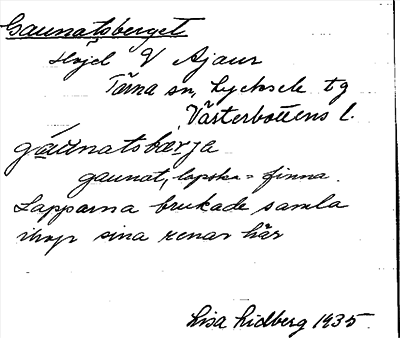 Gaunatsberget
Höjd V Ajaur
Tärna sn, Lycksele tg
Västerbottens l.
gáu̯natsbær̄ja
gaunat, lapska = finna.
Lapparna brukade samla
ihop sina renar här
Lisa Lidberg 1935